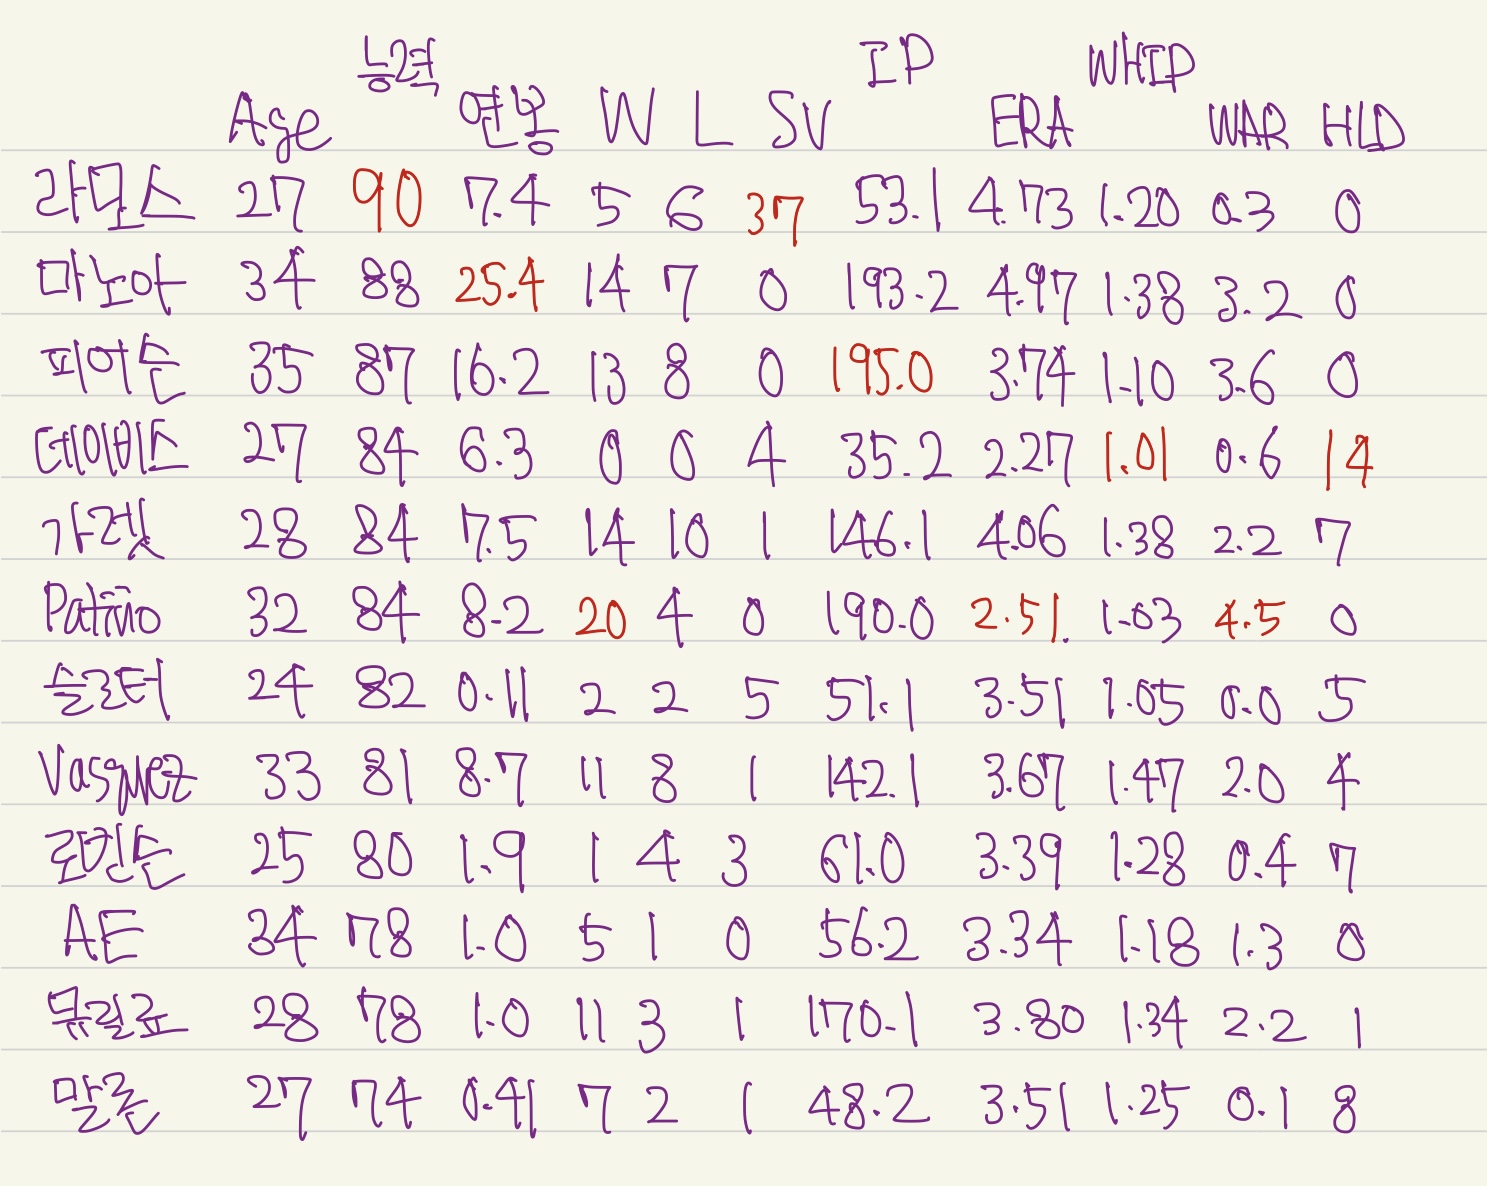 Age 능력 연봉 W L SV IP ERA WHIP WAR HLD
라모스 27 90 7.4 5 6 37 53.1 4.73 1.20 0.3 0
마노아 34 88 25.4 14 7 0 193.2 4.97 1.38 3.2 0
피어슨 35 87 16.2 13 8 0 195.0 3.74 1.10 3.6 0
데이비스 27 84 6.3 0 0 4 35.2 2.27 1.01 0.6 14
가렛 28 84 7.5 14 10 1 146.1 4.06 1.38 2.2 7
Patiño 32 84 8.2 20 4 0 190.0 2.51 1.03 4.5 0
슬로터 24 82 0.11 2 2 5 51.1 3.51 1.05 0.0 5
Vasquez 33 81 8.7 11 8 1 142.1 3.67 1.47 2.0 4
로빈슨 25 80 1.9 1 4 3 61.0 3.39 1.28 0.4 7
AE 34 78 1.0 5 1 0 56.2 3.34 1.18 1.3 0
뮤릴료 28 78 1.0 11 3 1 170.1 3.80 1.34 2.2 1
말론 27 74 0.41 7 2 1 48.2 3.51 1.25 0.1 8